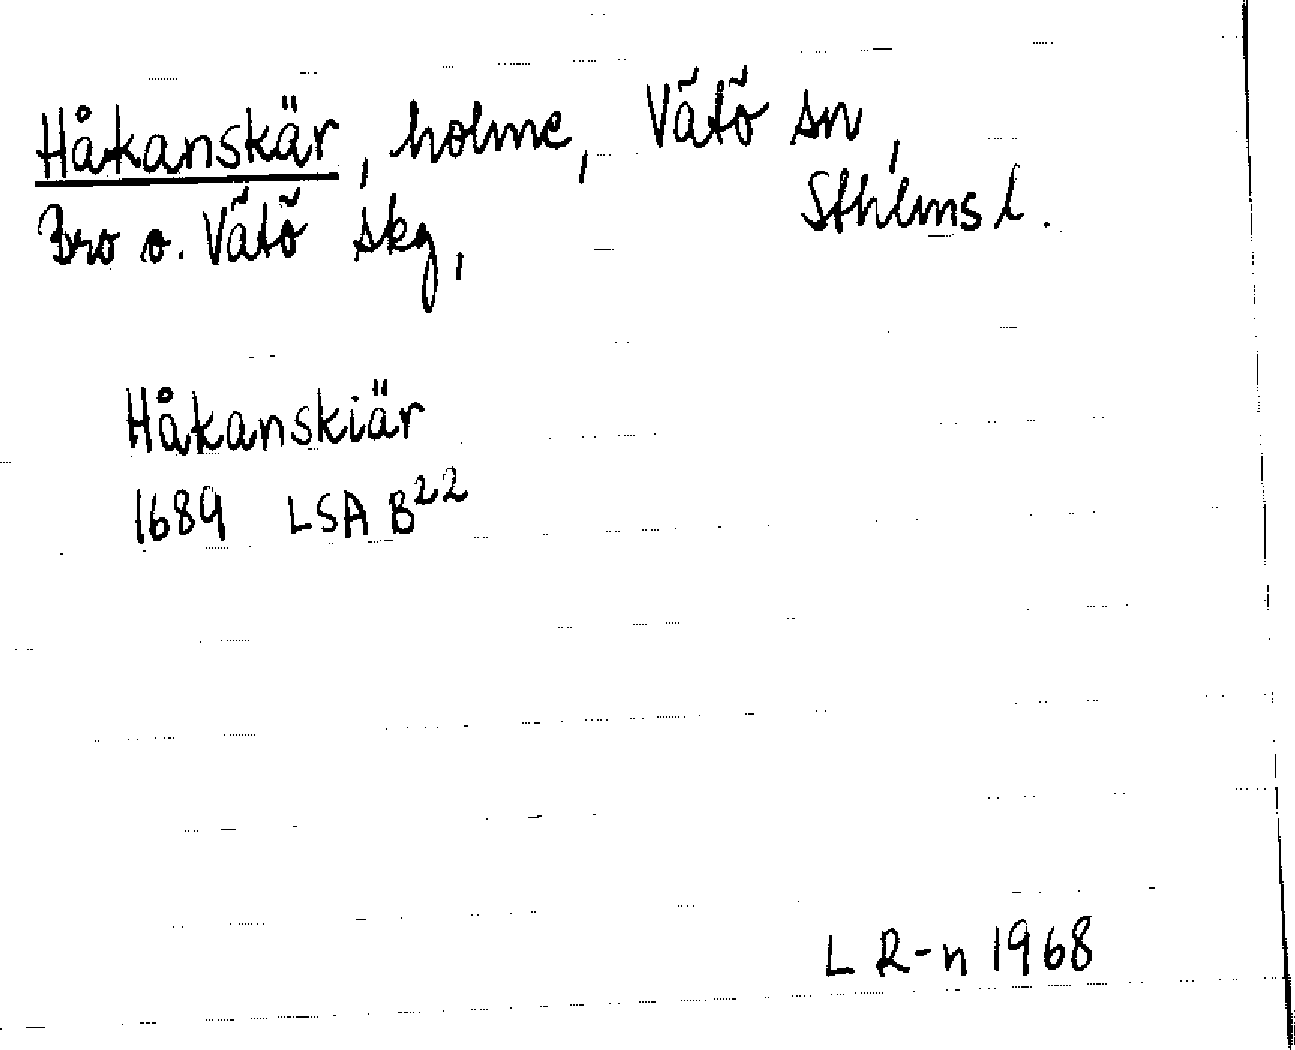 Håkanskär, holme, Vätö sn,
Sthlms l.
Bro o. Vätö skg,
Håkanskiär
1689 LSA B²²
L R-n 1968